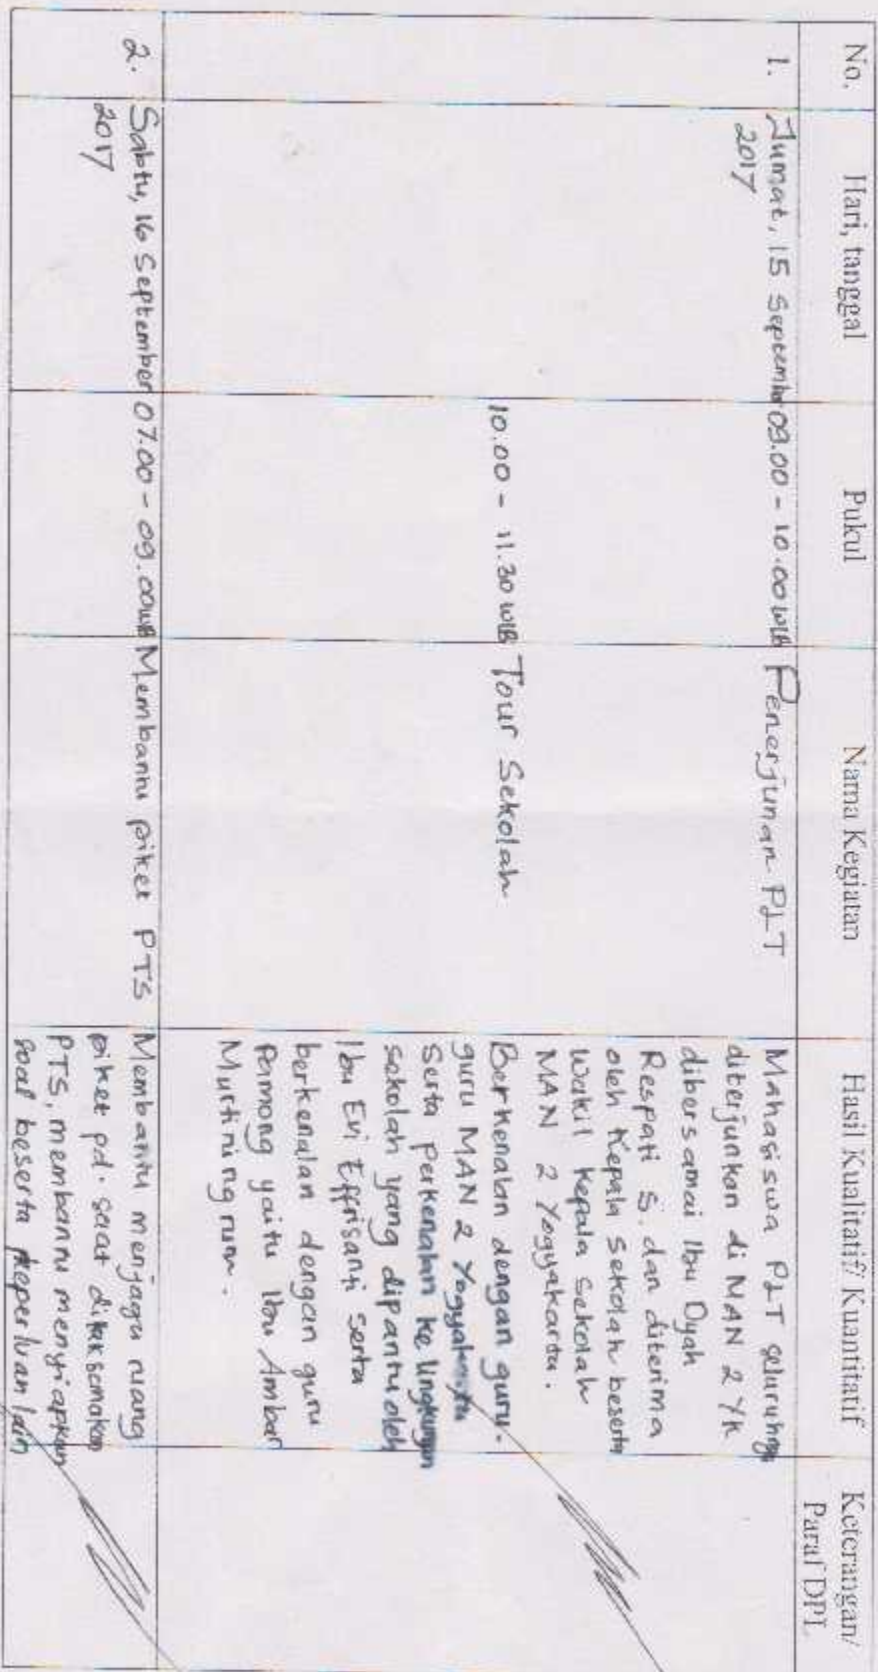 No. Hari, tanggal Pukul Nama Kegiatan Hasil Kualitatif/ Kuantitatif Keterangan/
Paraf DPL
1. Jumat, 15 September 09.00 - 10.00 WIB Penerjunan PLT Mahasiswa PLT seluruhnya
2017 diterjunkan di MAN 2 YK
dibersamai Ibu Dyah
Respati S. dan diterima
oleh Kepala Sekolah beserta
Wakil Kepala Sekolah
MAN 2 Yogyakarta.
10.00 - 11.30 WIB Tour Sekolah Berkenalan dengan guru-
guru MAN 2 Yogyakarta
Serta Perkenalan ke lingkungan
sekolah yang dipantu oleh
Ibu Evi Effrisanti serta
berkenalan dengan guru
Pamong yaitu Ibu Ambar
Murtiningrum.
2. Sabtu, 16 September 07.00 - 09.00 WIB Membantu piket PTS Membantu menjaga ruang
2017 piket pd. saat dilaksanakan
PTS, membantu menyiapkan
soal beserta keperluan lain